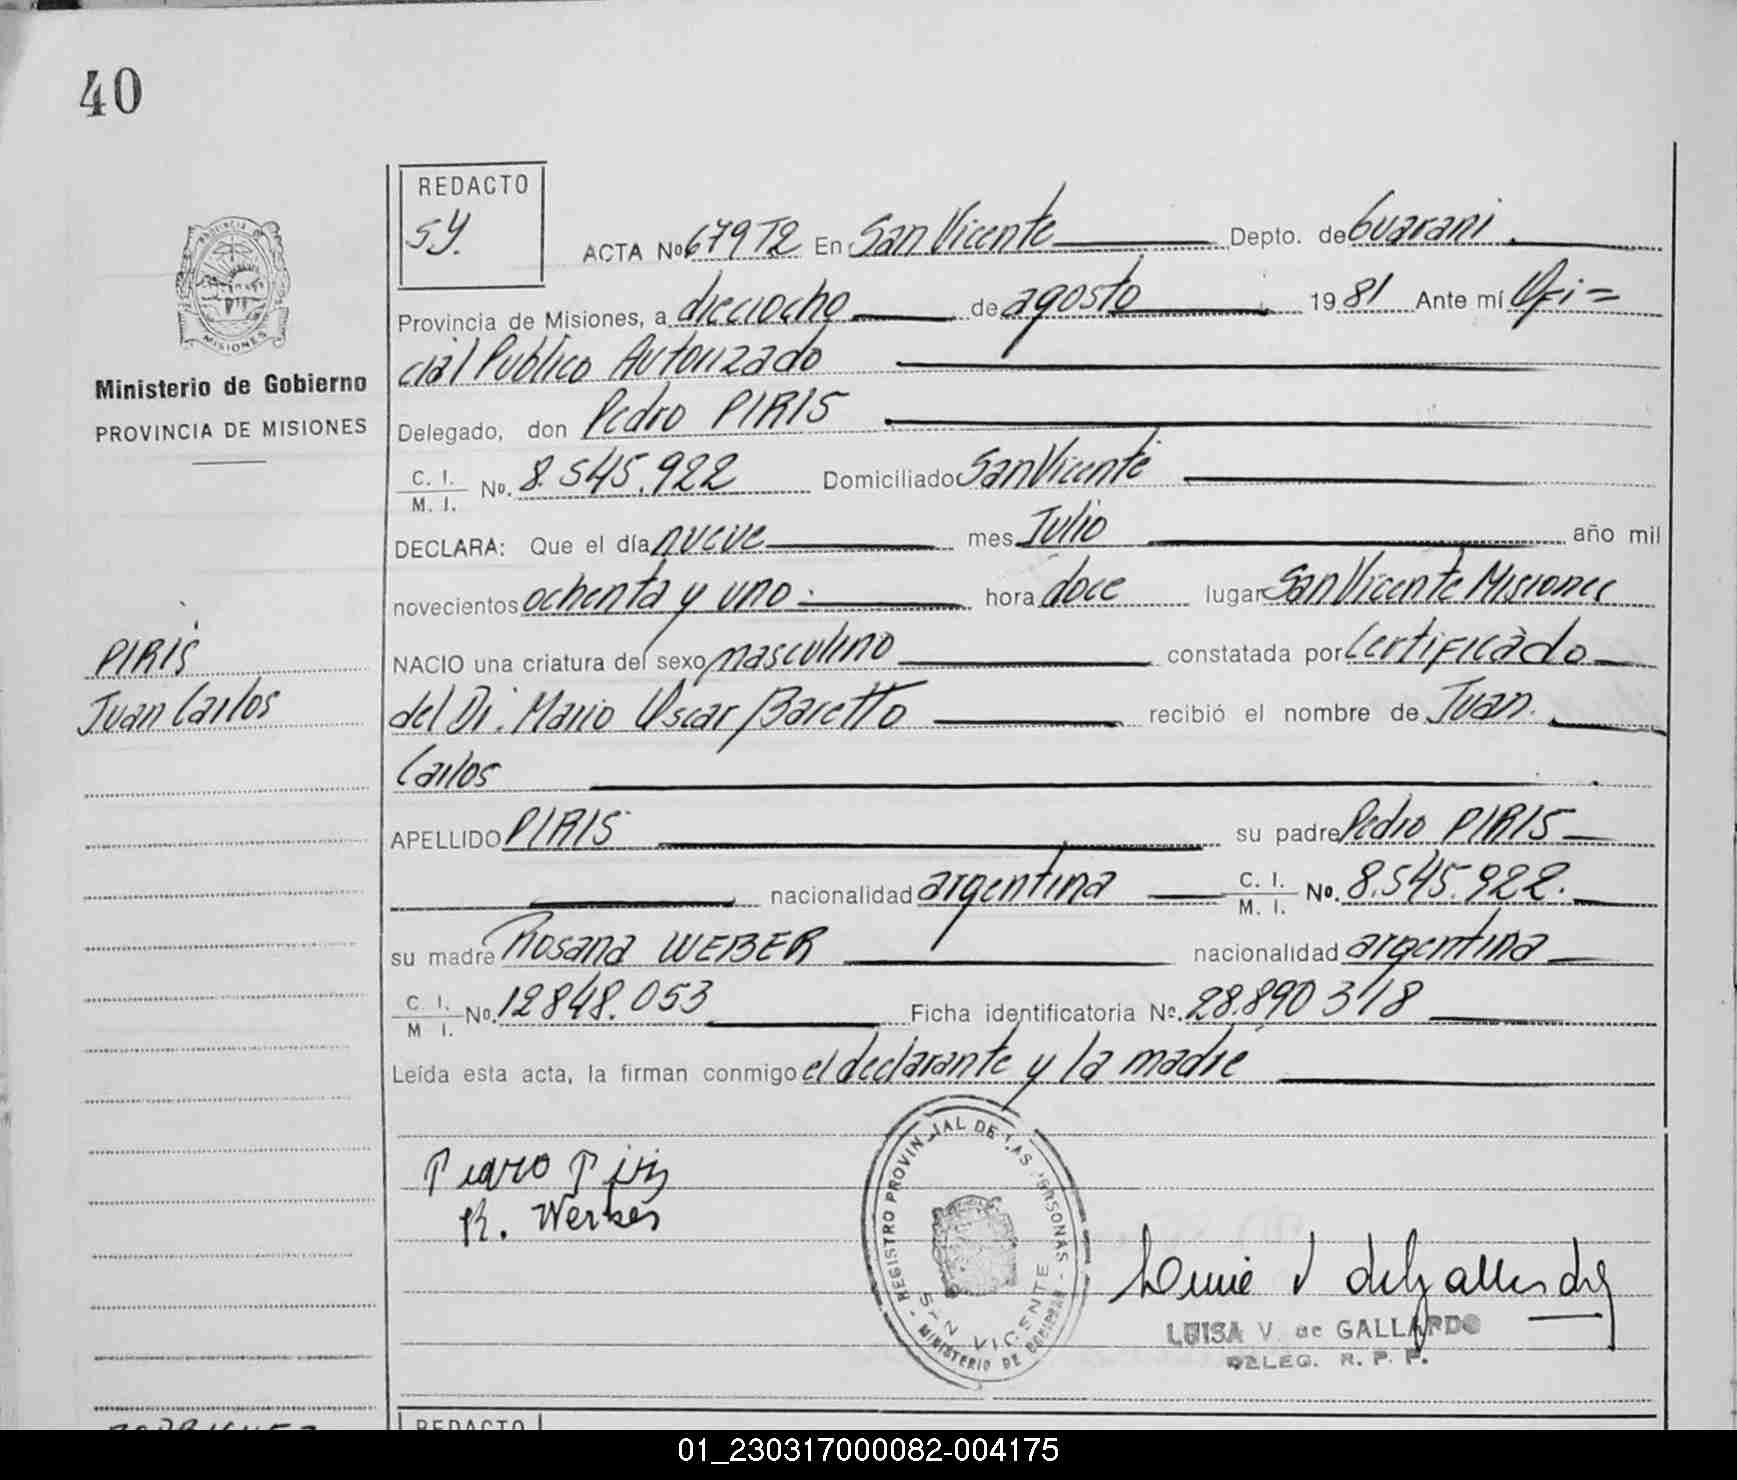 40
REDACTO
SY.
ACTA No 679T2 En San Vicente Depto. de Guarani
Provincia de Misiones, a dieciocho de agosto 1981 Ante mí Ofi=
cial Publico Autorizado
Ministerio de Gobierno
PROVINCIA DE MISIONES
Delegado, don Pedro PIRIS
C. I. / M. I. No. 8.545.922 Domiciliado San Vicente
DECLARA: Que el día nueve mes Julio año mil
novecientos ochenta y uno: hora doce lugar San Vicente Misiones
PIRIS
NACIO una criatura del sexo masculino constatada por Certificado
Juan Carlos
del Dr. Mario Oscar Baretto recibió el nombre de Juan
Carlos
APELLIDO PIRIS su padre Pedro PIRIS
nacionalidad argentina C. I. / M. I. No. 8.545.922.
su madre Rosana WEBER nacionalidad argentina
C. I. / M. I. No. 12848.053 Ficha identificatoria No. 28.890318
Leída esta acta, la firman conmigo el declarante y la madre
REGISTRO PROVINCIAL DE LAS PERSONAS - MINISTERIO DE GOBIERNO -
SAN VICENTE
Pedro Piris
LUISA V. de GALLARDO
DELEG. R. P. P.
REDACTO
01_230317000082-004175